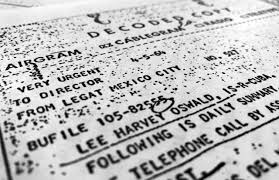 DECODED COPY
AIRGRAM CABLEGRAM RADIO
VERY URGENT 4-5-64 NO.
TO DIRECTOR
FROM LEGAT MEXICO CITY
BUFILE 105-82555
LEE HARVEY OSWALD IS-R-CUBA
FOLLOWING IS DAILY SUMMARY
TELEPHONE CALL BY